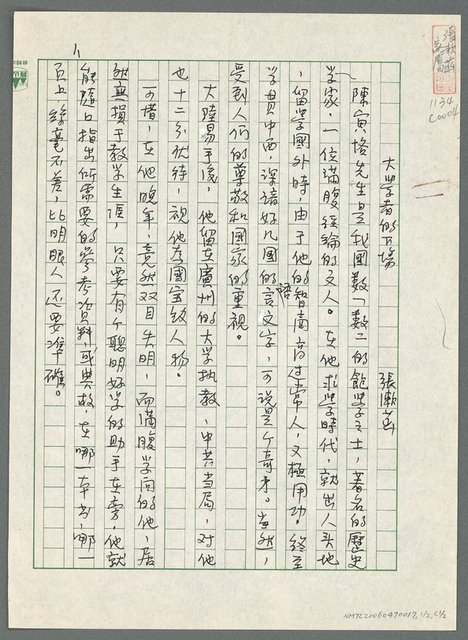 大學者的下場　張漱菡
陳寅恪先生是我國數一數二的飽學之士，著名的歷史
學家，一位滿腹經綸的文人。在他求學時代，就出人頭地
，留學國外時，由于他的智商高過常人，又極用功。終至
學貫中西，深諳好几國的語言文字，可說是个奇才。當然，
受到人們的尊敬和國家的重視。
大陸易手後，他留在廣州的大学执教，中共当局，对他
也十二分优待，視他為國宝級人物。
可惜，在他晚年，竟然双目失明，而滿腹学问的他，居
然無損于教学生涯，只要有个聰明好学的助手在旁，他就
能随口指出所需要的參考資料，或典故，在哪一本书，哪一
頁上，絲毫不差，比明眼人还要准確。
1134
C0004
NMTL20060470017, 1/2, C1/2